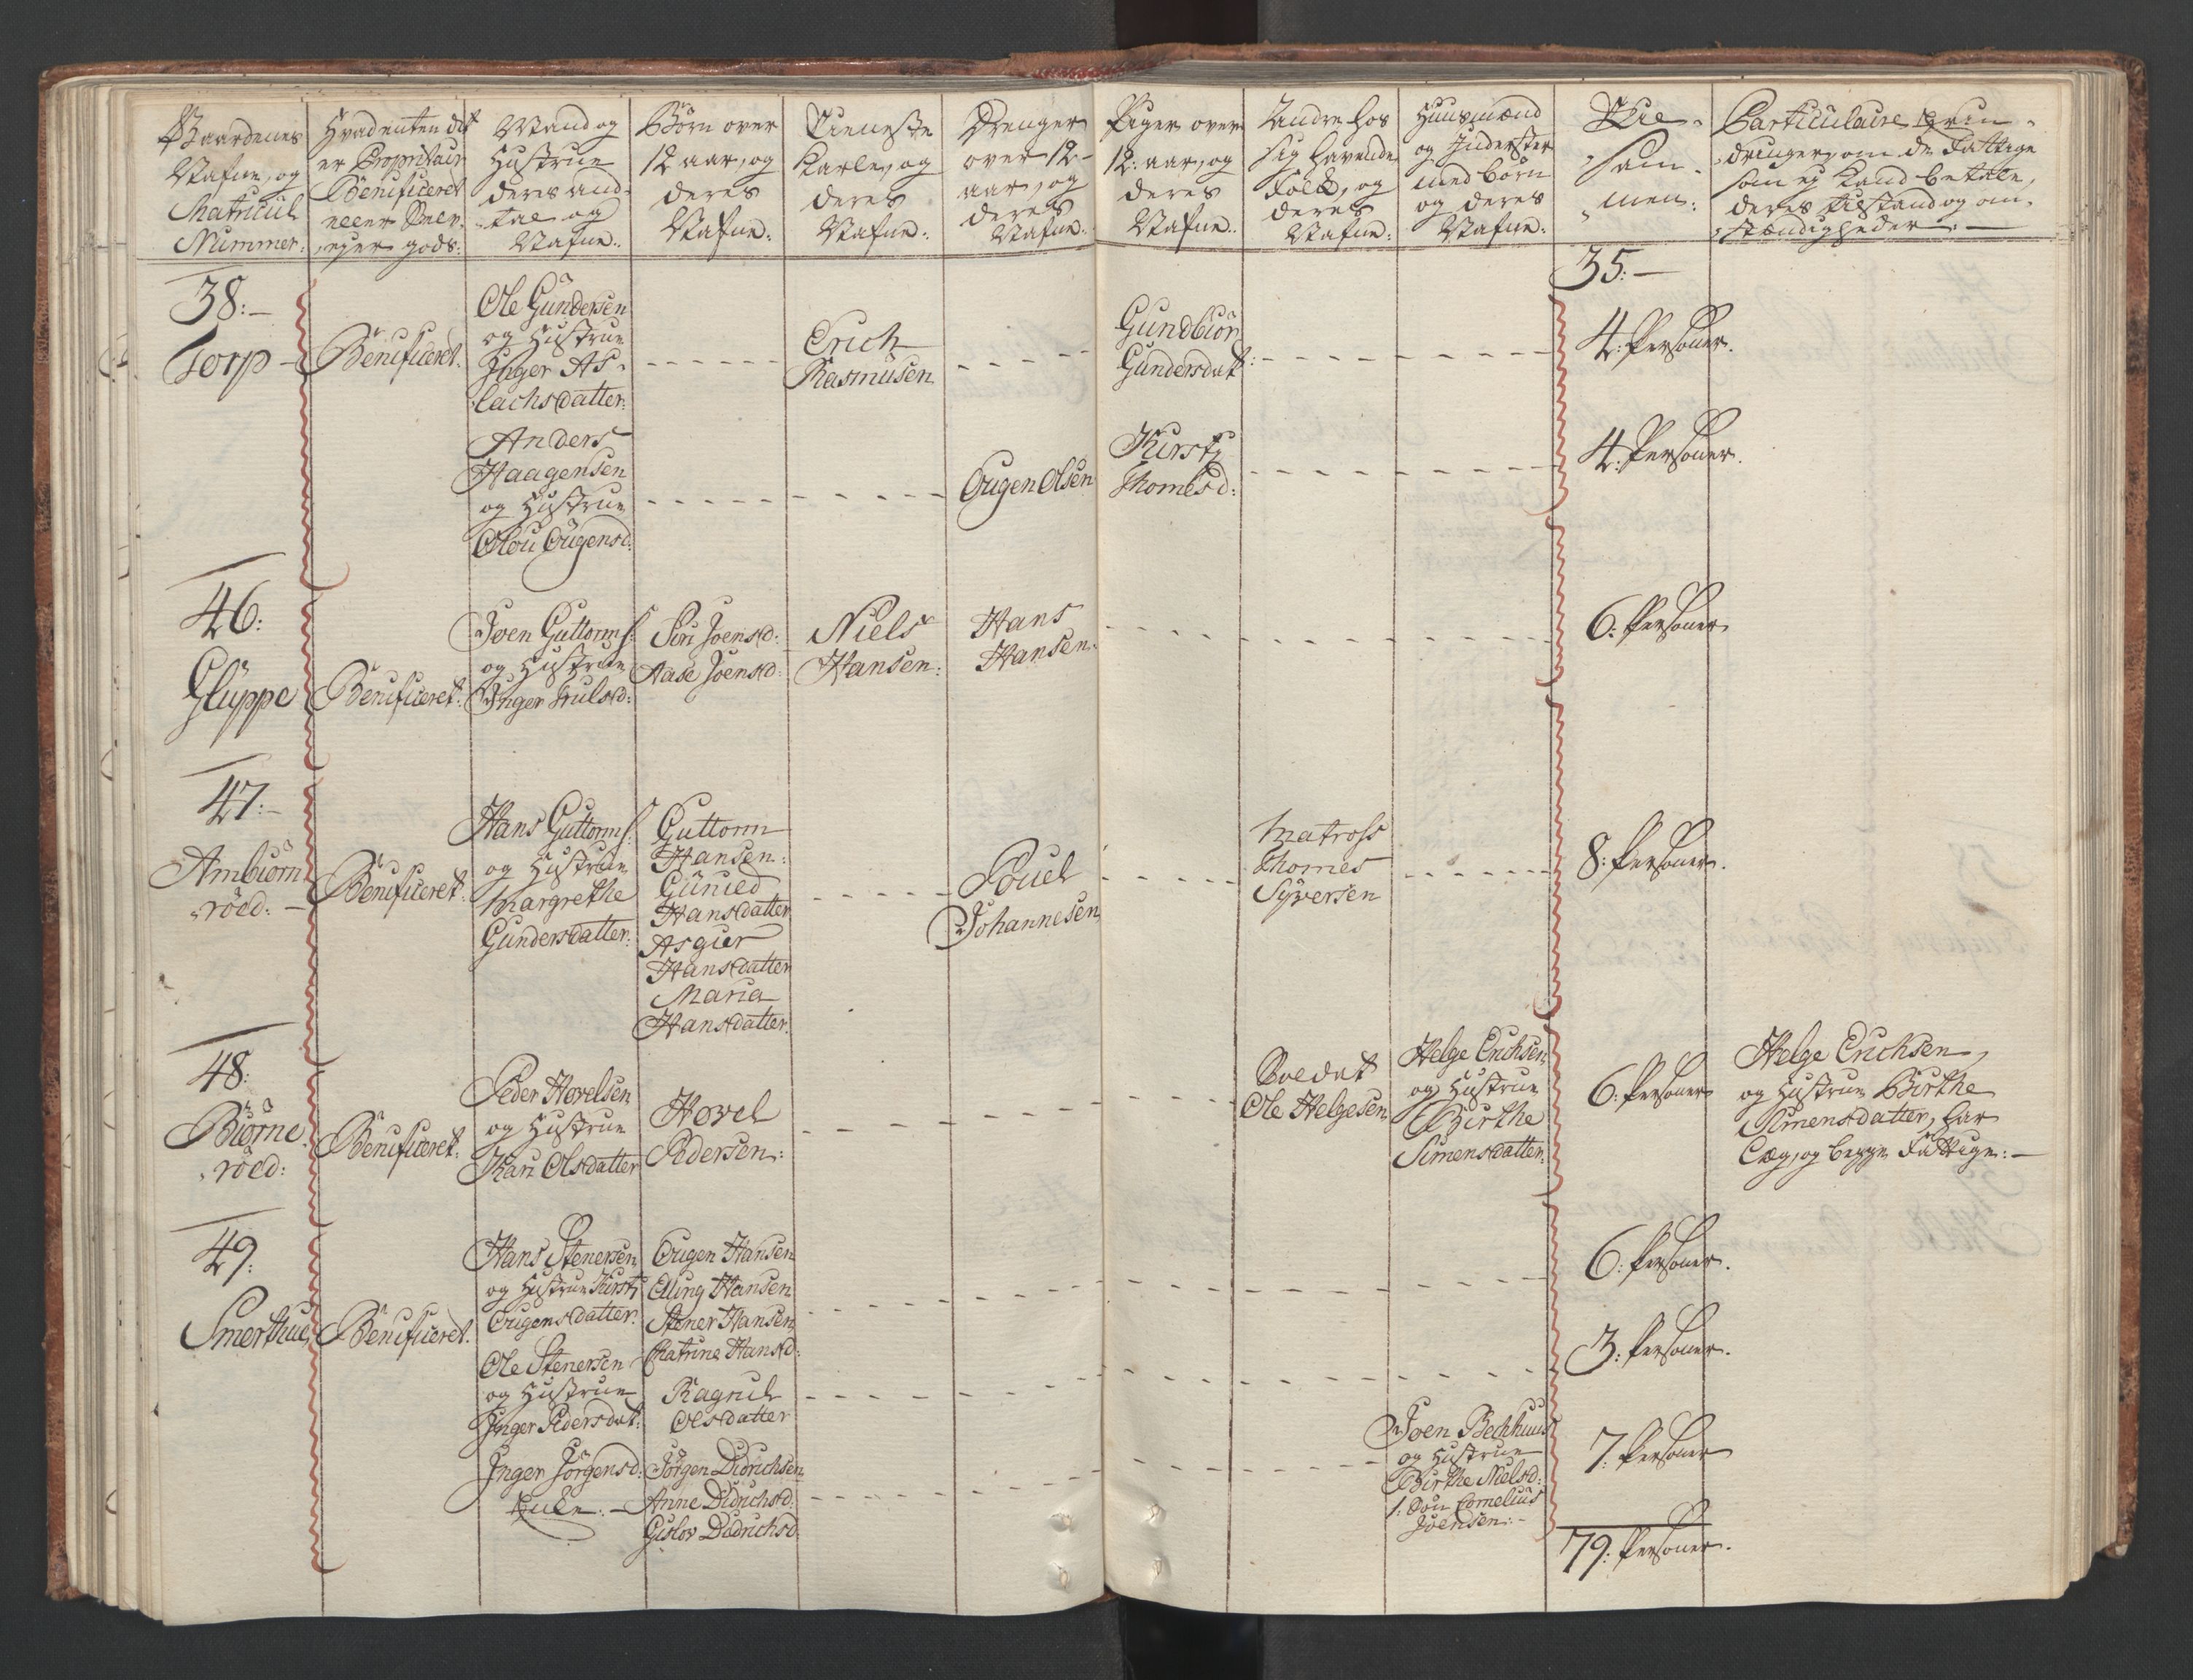 Gaardenes
Nafne, og
Matricul
Nummer:
Hvad enten det
er Propritair
Benificeret
eller Selv-
ejer gods:
Mand og
Hustrue
deres and-
tal og
Nafne:
Börn over
12 aar, og
deres
Nafne:
Tieneste
Karle, og
deres
Nafne:
Drenger
over 12
aar, og
deres
Nafne:
Piger over
12: aar, og
deres
Nafne:
Andre hos
sig havende
Folck, og
deres
Nafne:
Huusmænd
og Inderster
med börn
og deres
Nafne:
Til-
sam-
men:
Particulaire Erin-
dringer, om de Fattige
som ej kand betale,
deres tilstand og om-
stændigheder:
35:
38:
Torp
Benificeret.
Ole Gundersen
og Hustrue
Inger As-
lachsdatter:
Erich
Rasmusen
Gundbiör
Gundersdat:
4: Personer.
Anders
Haagensen
og Hustrue
Olou Ougensd:
Ougen Olsen
Kirsty
Thomesd:
4: Personer.
46:
Glüppe
Benificeret:
Joen Guttorms:
og Hustrue
Inger Trulsd:
Siri Joensd:
Aase Joensd:
Niels
Hansen:
Hans
Hansen:
6: Personer
47:
Ambiörn
röed:
Benificeret
Hans Guttorms:
og Hustrue
Margrethe
Gundersdatter:
Guttorm
Hansen:
Gunied
Hansdatter
Asgier
Hansdatter
Maria
Hansdatter:
Pouel
Johannesen
Matross
Thomes
Syversen
8: Personer.
48:
Biörne
röed:
Benificeret:
Peder Hovelsen
og Hustrue
Kari Olsdatter
Hovel
Pedersen:
Soldat
Ole Helgesen
Helge Erichsen
og Hustrue
Birthe
Simensdatter:
6: Personer
Helge Erichsen,
og Hustrue Birthe
Simensdatter, har
Læg, og begge Fattige:
49:
Smerthue
Benificeret.
Hans Stenersen
og Hustrue Kirsti
Ougensdatter:
Ougen Hansen
Elling Hansen
Stener Hansen
Chatrine Hansd:
6: Personer.
Ole Stenersen
og Hustrue
Inger Pedersdat:
Ragnil
Olsdatter
3: Personer.
Inger Jörgensd:
Enke:
Jörgen Didrichsen
Anne Didrichsd:
Gislov Didrichsd
Joen Bechhuus
og Hustrue
Birthe Nielsd:
1: Sön Cornelius
Joensen:
7: Personer
79: Personer.